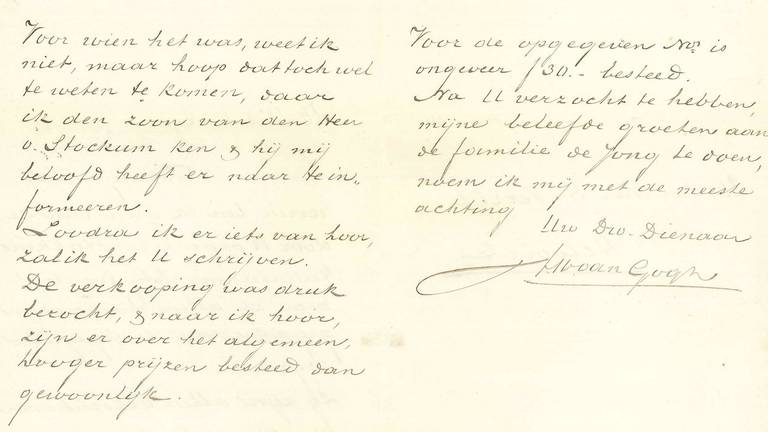 Voor wien het was, weet ik
niet, maar hoop dat toch wel
te weten te komen, daar
ik den zoon van den Heer
v. Stockum ken & hij mij
beloofd heeft er naar te in„
formeeren.
Zoodra ik er iets van hoor,
zal ik het U schrijven.
De verkooping was druk
bezocht, & naar ik hoor,
zijn er over het algemeen,
hooger prijzen besteed dan
gewoonlijk.
Voor de opgegeven Nrs is
ongeveer ƒ30.- besteed.
Na U verzocht te hebben,
mijne beleefde groeten aan
de familie de Jong te doen,
noem ik mij met de meeste
achting
Uw Dw. Dienaar
van Gogh